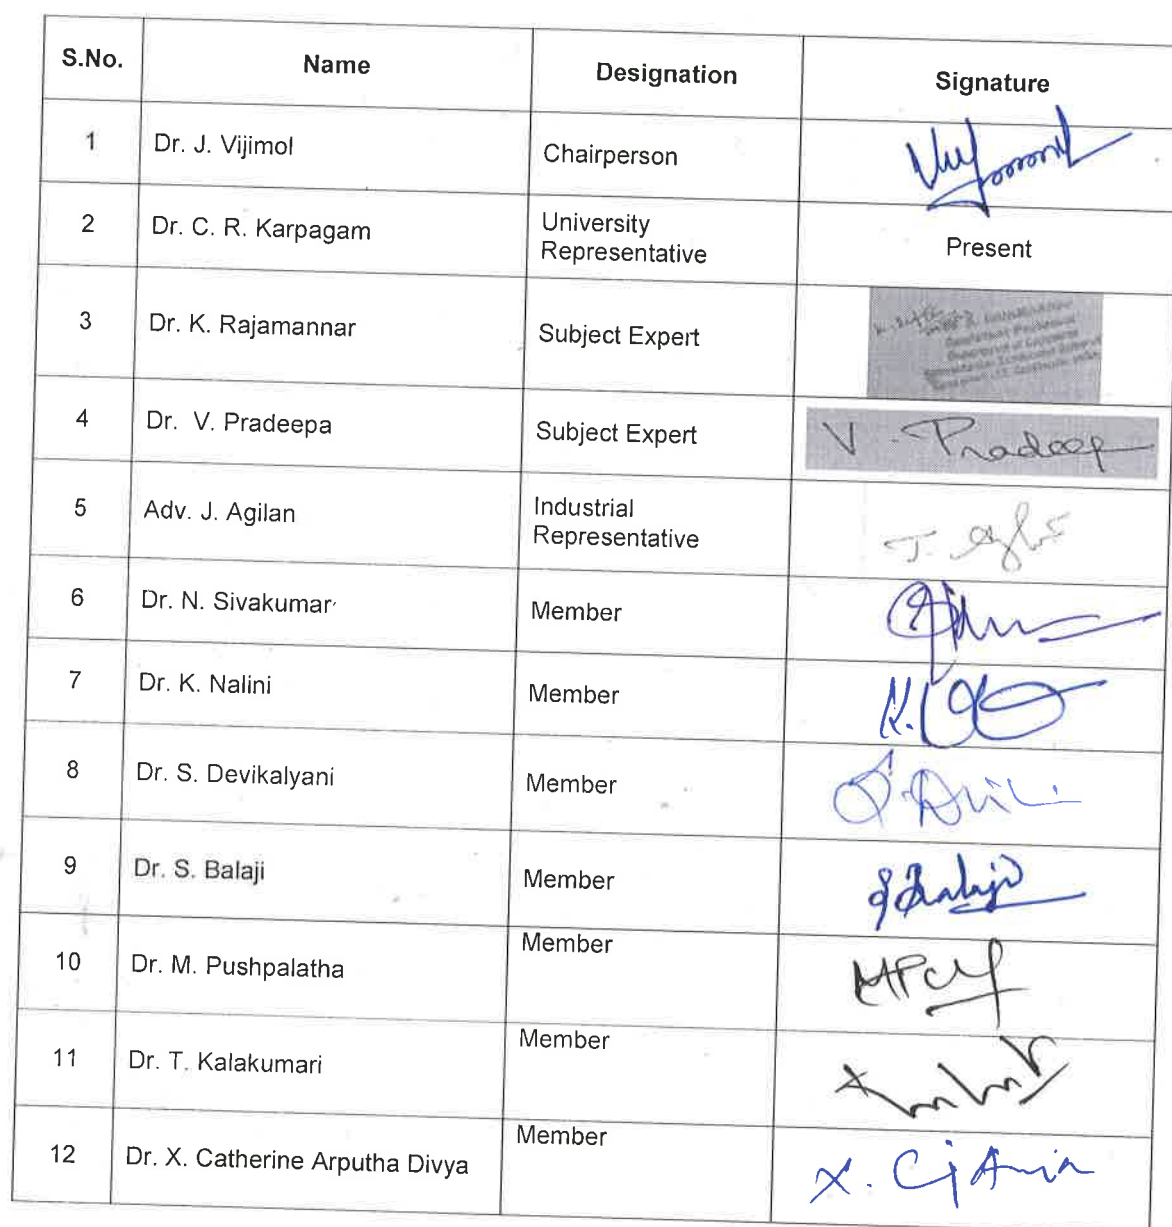 S.No. Name Designation Signature
1 Dr. J. Vijimol Chairperson
2 Dr. C. R. Karpagam University
Representative Present
3 Dr. K. Rajamannar Subject Expert
4 Dr. V. Pradeepa Subject Expert V. Pradeep
5 Adv. J. Agilan Industrial
Representative
6 Dr. N. Sivakumar Member
7 Dr. K. Nalini Member
8 Dr. S. Devikalyani Member
9 Dr. S. Balaji Member S Balaji
10 Dr. M. Pushpalatha Member
11 Dr. T. Kalakumari Member
12 Dr. X. Catherine Arputha Divya Member